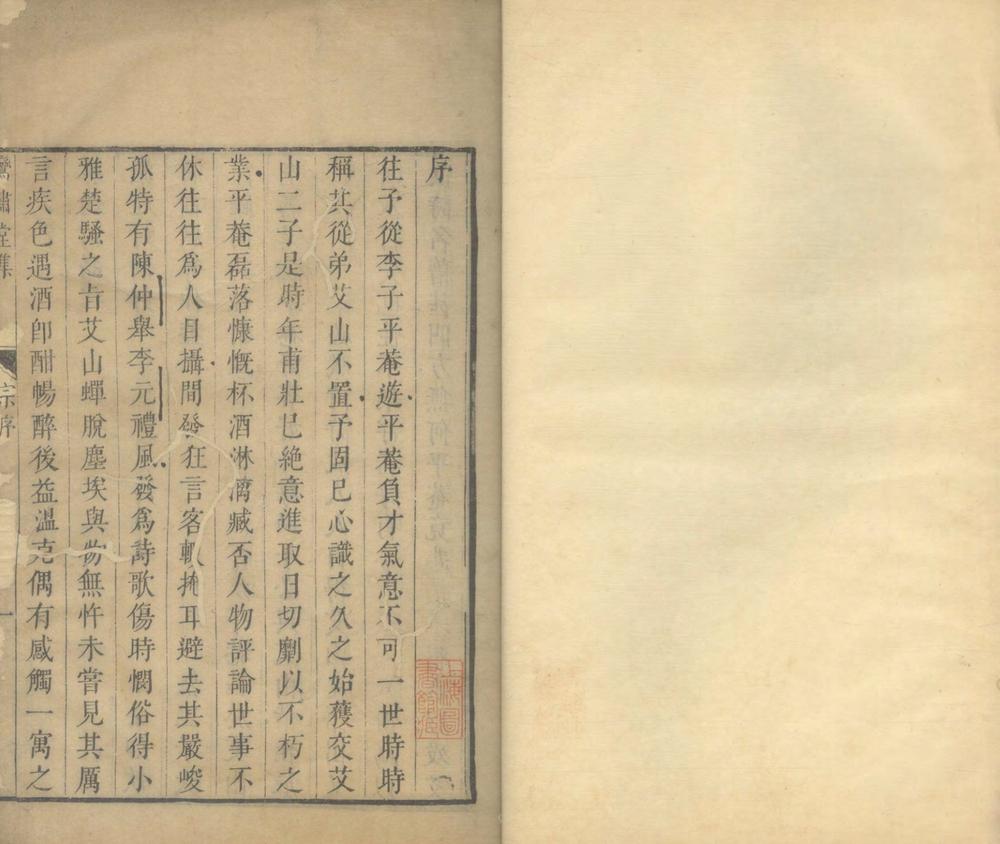 序
往予從李子平菴遊平菴負才氣意不可一世時時
稱其從弟艾山不置予固已心識之久之始獲交艾
山二子是時年甫壯已絶意進取日切劘以不朽之
業平菴磊落慷慨杯酒淋漓臧否人物評論世事不
休往往爲人目攝間發狂言客輒掩耳避去其嚴峻
孤特有陳仲舉李元禮風發爲詩歌傷時憫俗得小
雅楚騷之旨艾山蟬脫塵埃與物無忤未嘗見其厲
言疾色遇酒卽酣暢醉後益溫克偶有感觸一寓之
嘯堂集
宗序
一
上海圖書館藏